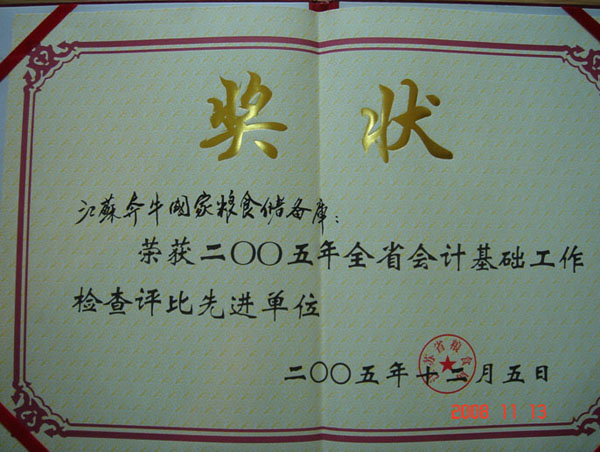 奖状
江蘇奔牛國家粮食储备库：
荣获二〇〇五年全省会计基础工作
检查评比先进单位
江苏省粮食局
二〇〇五年十二月五日
2008 11 13